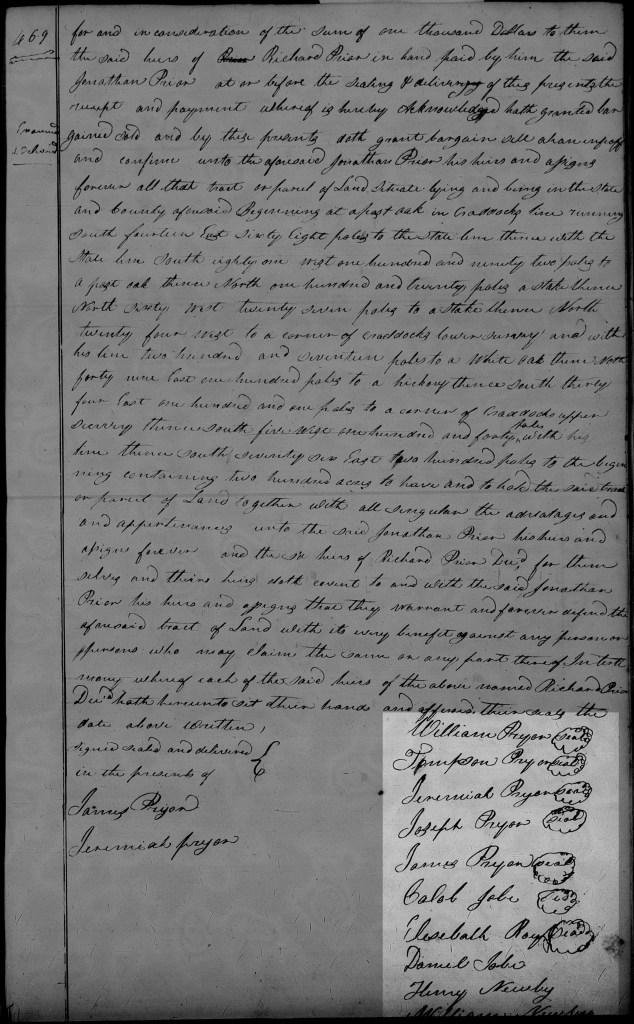 469
for and in consideration of the sum of one thousand Dollars to them
the said heirs of Richard Prior in hand paid by him the said
Jonathan Prior at or before the sealing & delivering of these presents the
receipt and payment whereof is hereby Acknowledged hath granted bar
gained sold and by these presents doth grant bargain sell
and confirm unto the aforesaid Jonathan Prior his heirs and assigns
forever all that tract or parcel of Land Situate lying and being in the State
and County aforesaid Beginning at a post oak in Craddocks line running
South fourteen East Sixty Eight poles to the State line thence with the
State line South eighty one west one hundred and ninety two poles to
a post oak thence North one hundred and twenty poles a Stake thence
North Sixty West twenty seven poles to a Stake thence North
twenty four west to a corner of Craddocks lower survey and with
his line two hundred and seventeen poles to a White oak thence North
forty nine East one hundred poles to a hickory thence south thirty
four East one hundred and one poles to a corner of Craddocks upper
survey thence south five West one hundred and forty poles with his
line thence south seventy six East two hundred poles to the begin
ning containing two hundred acres to have and to hold the said tract
or parcel of Land together with all singular the advatages and
and appertinances unto the said Jonathan Prior his heirs and
assigns forever and the heirs of Richard Prior Dec'd for them
selves and their heirs doth covent to and with the said Jonathan
Prior his heirs and assigns that they warrant and forever defend the
aforesaid tract of Land with its every benefit against any person or
persons who may claim the same or any part thereof In testi
mony whereof each of the said heirs of the above named Richard Prior
Dec'd hath hereunto set their hands and affixed their seals the
date above written,
signed sealed and delivered
in the presents of
James Pryor
Jeremiah pryor
William Pryor Seal
Tompson Pryor Seal
Jeremiah Pryor Seal
Joseph Pryor Seal
James Pryor Seal
Calob Jobe Seal
Elesebath Ray Seal
Daniel Jobe
Henry Newby
William Newby